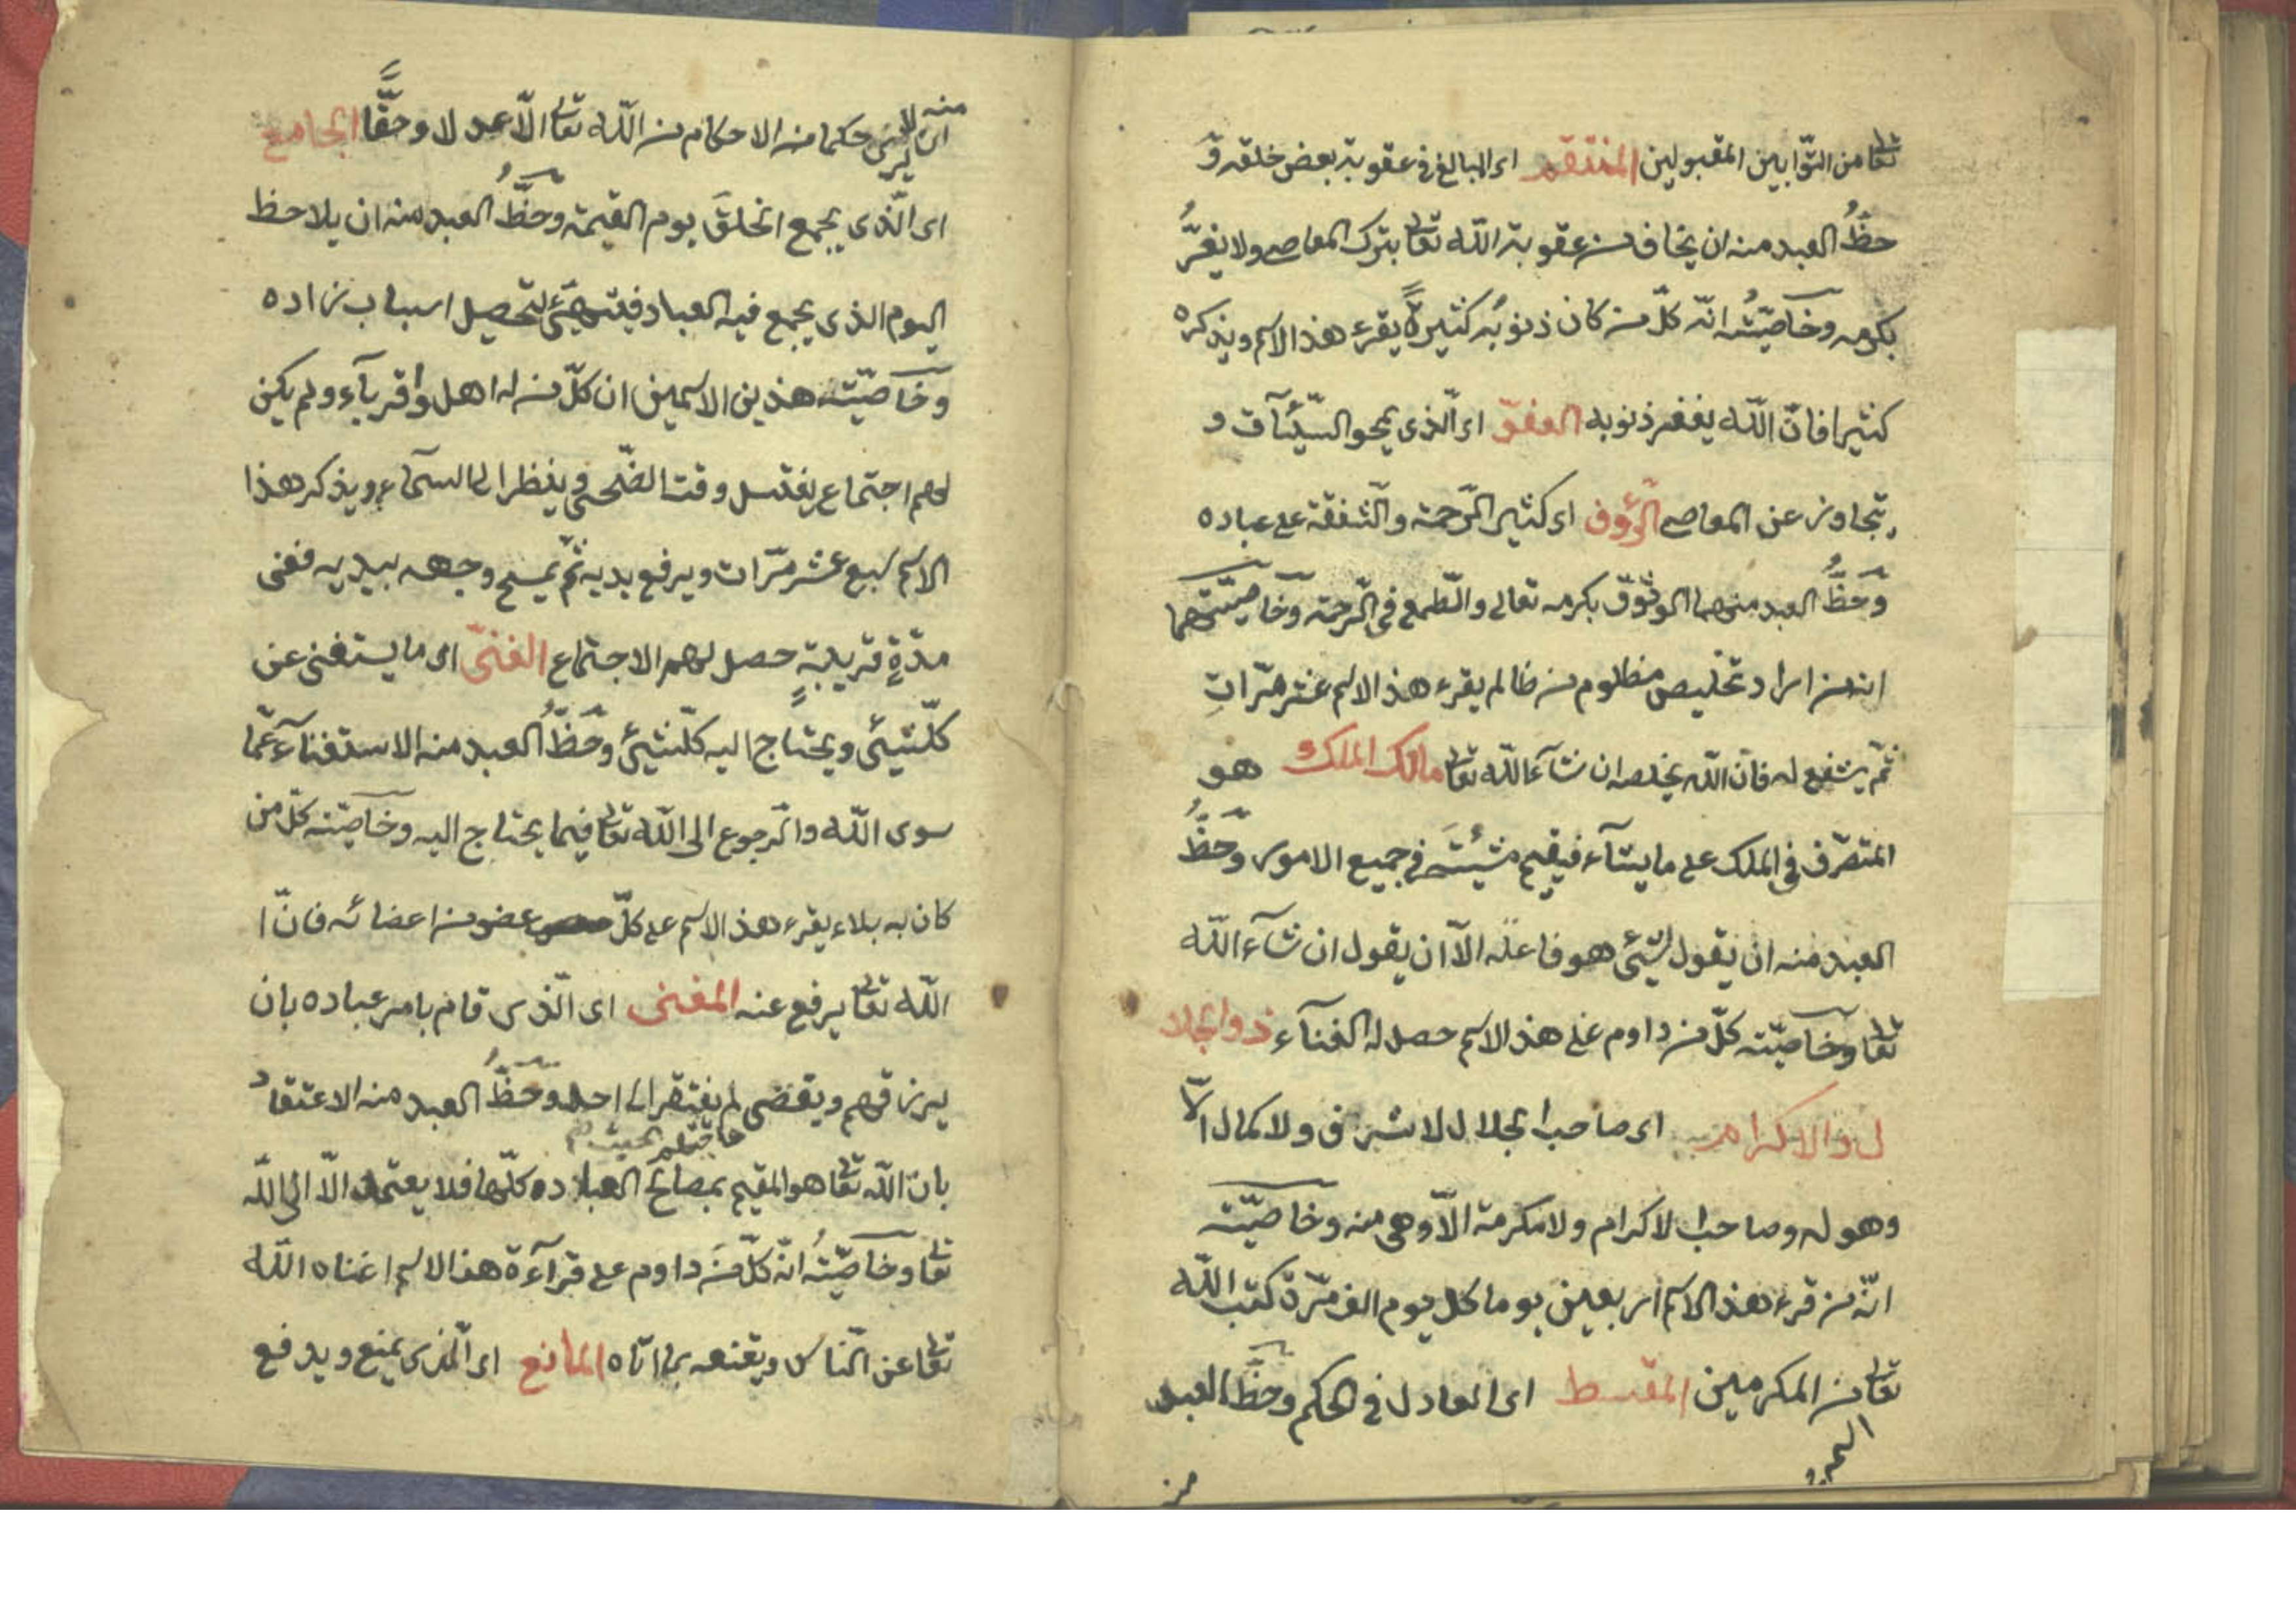 تعا من التوّابين المقبولين المنتقم اى المبالغ فى عقوبة بعض خلقه وَ
حظُّ العبد منه ان يخاف من عقوبة الله تعا بترك المعاصى ولا يغرُّ
بكرمه وخاصيّتُه انّه كلّ من كان ذنوبُه كثيرةً يقرء هذ الاسم ويذكره
كثيرا فانّ الله يغفر ذنوبه العفوّ اى الّذى يمحو السيّئآت و
يتجاوز عن المعاصى الرّؤف اى كثير الرّحمة والشّفقة على عباده
وحَظُّ العبد منهما الوثوق بكرمه تعالى والطّمع فى الرّحمة وخاصيّتهما
انه من اراد تخليص مظلوم من ظالم يقرء هذ الاسم عشر مرّاتٍ
ثمّ يشفع له فانّ الله يخلصه ان شآء الله تعا مالك الملك هو
المتصرّف فى الملك على ما يشآء فيقيم مشيئته فى جميع الامور وحَظُّ
العبد منه ان يقول لشئ هو فاعله الّا ان يقول ان شآء الله
تعا وخآصيّته كلّ من داوم على هذ الاسم حصل له الغنآء ذو الجلا
ل والاكرام اى صاحب الجلال لا شرف ولا كمال الّا
وهو له وصاحب الاكرام ولا مكرمة الّا وهى منه وخاصيّته
انّه من قرء هذ الاسم اربعين يوما كل يوم الف مرّة كتب الله
تعا من المكرمين المقسط اى العادل فى الحكم وحظّ العبد
من
منه
ان لا يرى حكما من الاحكام من الله تعا الّا عدلا وحقًّا الجامع
اى الّذى يجمع الخلقَ يوم القيمة وحظُّ العبد منه ان يلاحظ
اليوم الذى يجمع فيه العباد فيتهيّئ لتحصيل اسباب زاده
وخاصيّته هذين الاسمين ان كلّ من له اهل واقربآء ولم يكن
لهم اجتماع يغتسل وقت الضّحى وينظر الى السمآء ويذكر هذا
الاسم سبع عشر مرّات ويرفع يديه ثمّ يمسح وجهه بيديه ففى
مدّةٍ قريبةٍ حصل لهم الاجتماع الغنىّ اى ما يستغنى عن
كلّ شيئ ويحتاج اليه كلّ شيئ وحَظُّ العبد منه الاستغنآء عمّا
سوى الله والرّجوع الى الله تعا فيما يحتاج اليه وخاصيّته كلّ من
كان به بلاء يقرء هذ الاسم على كلّ عضو من اعضائه فانّ ا
الله تعا يرفع عنه المغنى اى الّذى قام بامر عباده بان
يرزقهم ويقضى لم يفتقر الى احد وحَظُّ العبد منه الاعتقاد
حاجتهم بحيث
بانّ الله تعا هو المقيم بمصالح العباده كلّها فلا يعتمد الّا الى الله
تعا وخاصيّتُه انّه كلّ مَن داوم على قرآءة هذ الاسم اغناه الله
تعا عن النّاس ويقنعه بما اتاه المانع اى الّذى يمنع ويدفع